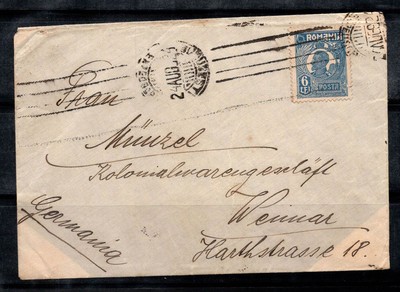 BUCUREȘTI
24 AUG
ROMANIA
6
LEI
POSTA
Frau
Münzel
Kolonialwarengeschäft
Weimar
Harthstrasse 18.
Germania